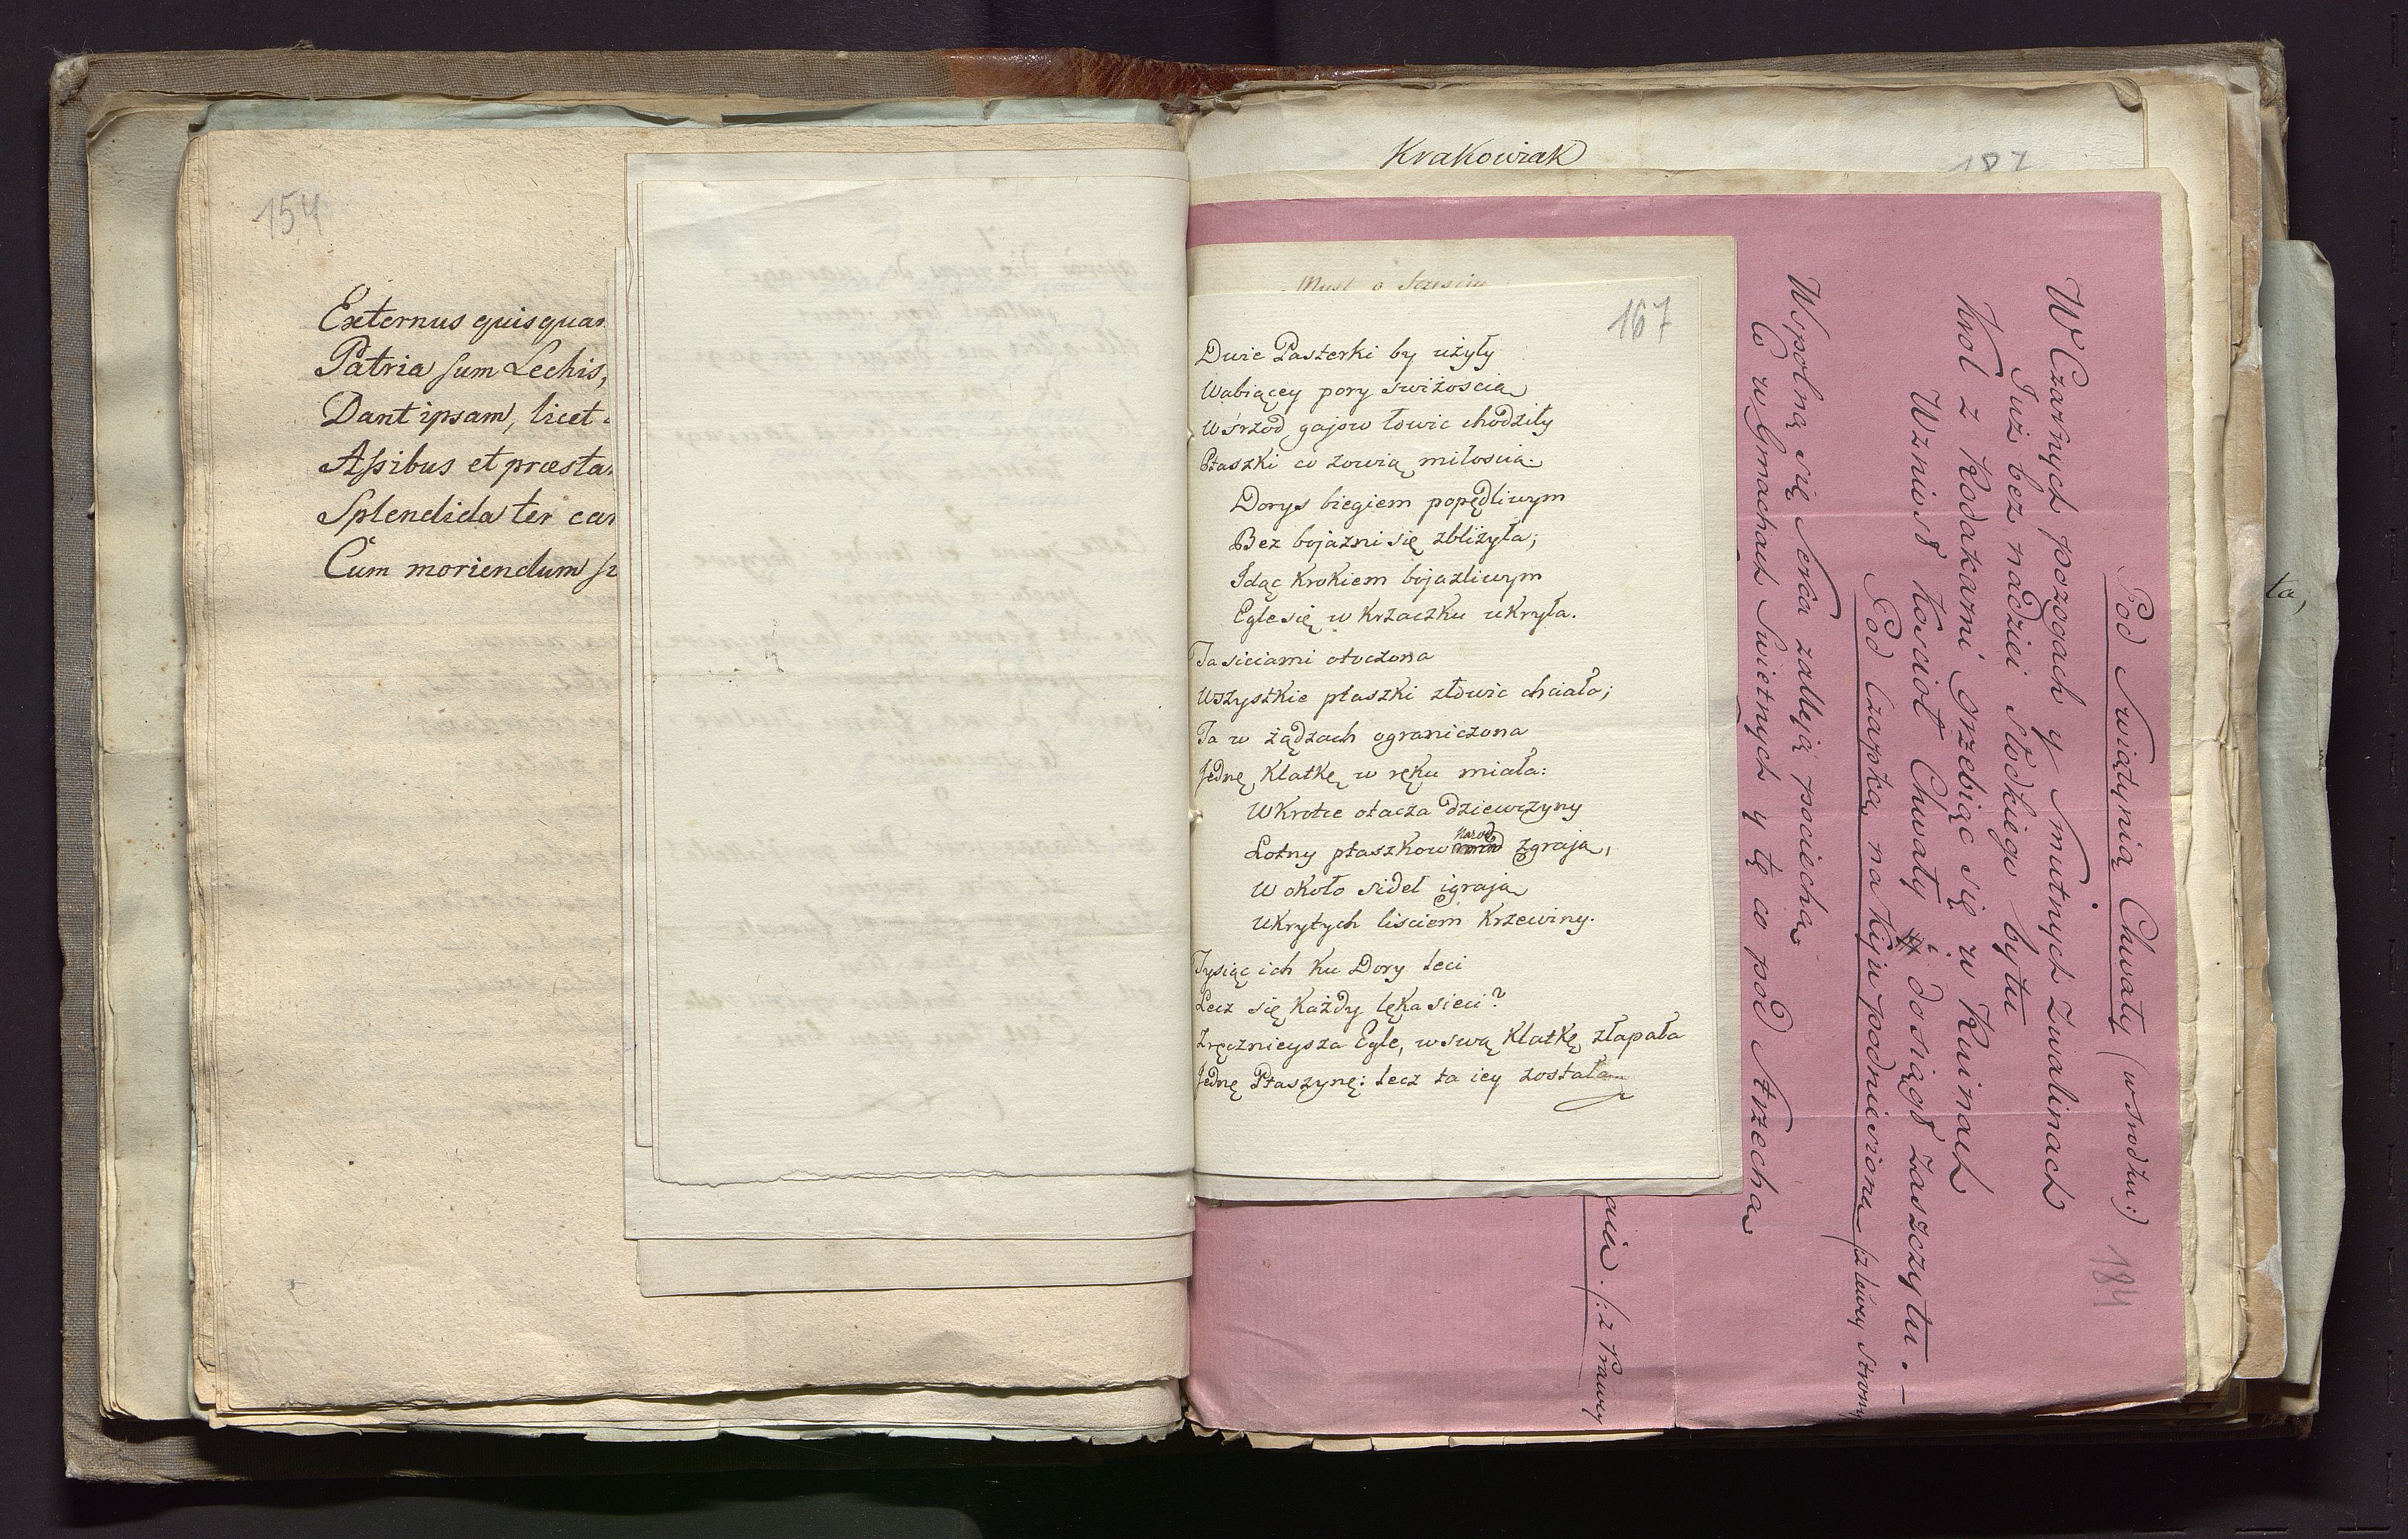 154
Externus quisquam
Patria sum Lechis,
Dant ipsam, licet
Assibus et præsta
Splendida ter car
Cum moriendum
Krakowiak
187
Mysl o
167
Dwie Pasterki by użyły
Wabiącey pory swiżoscią
Wśrzod gajow łowic chodziły
Ptaszki co zowią miłoscią.
Dorys biegiem popędliwym
Bez bojazni się zbliżyła;
Idąc krokiem bojazliwym
Egle się w krzaczku ukryła.
Ta sieciami otoczona
Wszystkie ptaszki złowic chciała;
Ta w żądzach ograniczona
Jednę klatkę w ręku miała:
Wkrotce otacza dziewczyny
Lotny ptaszkow narod zgraja,
W około sideł igrają
Ukrytych lisciem krzewiny.
Tysiąc ich ku Dory leci
Lecz się każdy lęka sieci?
Zręcznieysza Egle, w swą klatkę złapała
Jednę Ptaszynę: lecz ta iey została
Pod Swiątynią Chwały (w srodku:)
184
W Czarnych pozogach y smutnych zwalinach
Już bez nadziei słodkiego bytu
Krol z Rodakami grzebiąc się w Ruinach
Wzniosł Koscioł Chwały i dosiągł zaszczytu. –
Pod Czapką na kiju podniesioną (z lewey strony
Wspolną się serca zalleją pociechą
Co w Gmachach Swietnych y tę co pod Strzechą
aiu. (: z Prawey
ta,